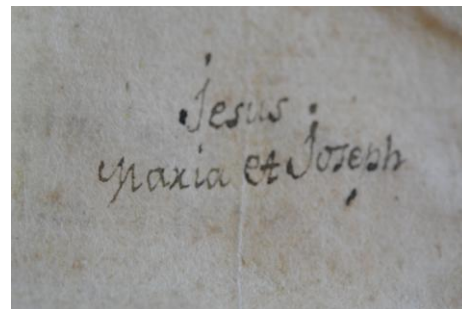 Jesus.
Maria et Joseph